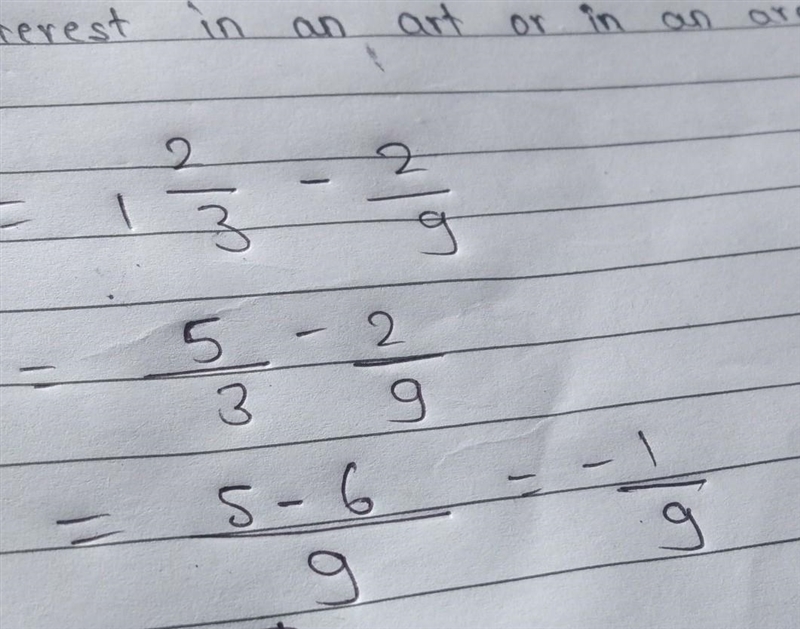 erest in an art or in an
= 1 2/3 - 2/9
= 5/3 - 2/9
= 5 - 6/9 = -1/9